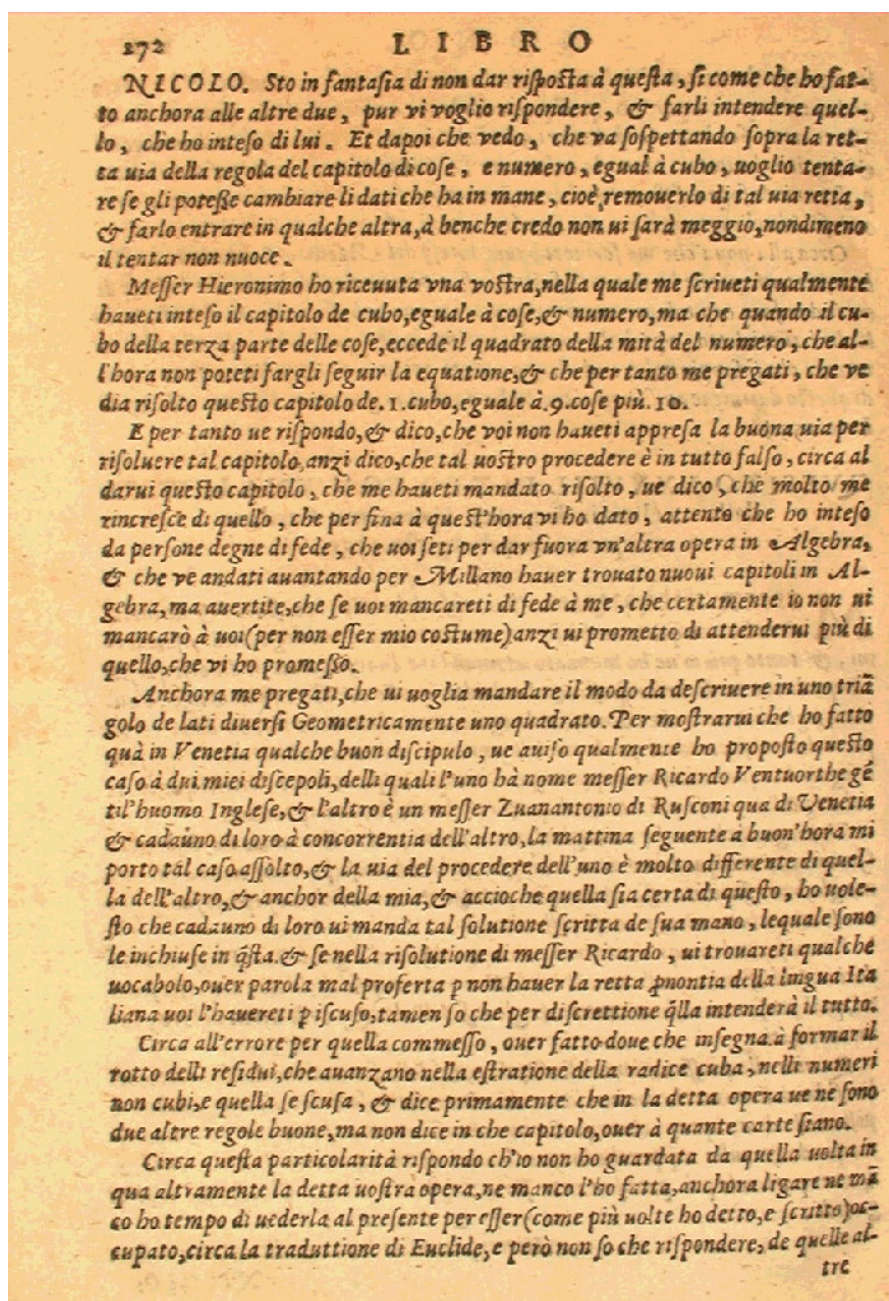 272 LIBRO
NICOLO. Sto in fantasia di non dar risposta à questa, si come che ho fat-
to anchora alle altre due, pur vi voglio rispondere, & farli intendere quel-
lo, che ho inteso di lui. Et dapoi che vedo, che va sospettando sopra la ret-
ta uia della regola del capitolo di cose, e numero, egual à cubo, uoglio tenta-
re se gli potesse cambiare li dati che ha in mane, cioè, remouerlo di tal uia retta,
& farlo entrare in qualche altra, à benche credo non ui sarà meggio, nondimeno
il tentar non nuoce.
Messer Hieronimo ho riceuuta vna vostra, nella quale me scriueti qualmente
haueti inteso il capitolo de cubo, eguale à cose, & numero, ma che quando il cu-
bo della terza parte delle cose, eccede il quadrato della mità del numero, che al-
l'hora non poteti fargli seguir la equatione, & che per tanto me pregati, che ve
dia risolto questo capitolo de. 1. cubo, eguale à. 9. cose più. 10.
E per tanto ue rispondo, & dico, che voi non haueti appresa la buona uia per
risoluere tal capitolo, anzi dico, che tal uostro procedere è in tutto falso, circa al
darui questo capitolo, che me haueti mandato risolto, ue dico, che molto me
rincresce di quello, che per fina à quest'hora vi ho dato, attento che ho inteso
da persone degne di fede, che uoi seti per dar fuora vn'altra opera in Algebra,
& che ve andati auantando per Millano hauer trouato nuoui capitoli in Al-
gebra, ma auertite, che se uoi mancareti di fede à me, che certamente io non ui
mancarò à uoi (per non esser mio costume) anzi ui prometto di attenderui più di
quello, che vi ho promesso.
Anchora me pregati, che ui uoglia mandare il modo da descriuere in uno triã
golo de lati diuersi Geometricamente uno quadrato. Per mostrarui che ho fatto
quà in Venetia qualche buon discipulo, ue auiso qualmente ho proposto questo
caso à dui miei discepoli, delli quali l'uno hà nome messer Ricardo Ventuorthe gẽ
til'huomo Inglese, & l'altro è un messer Zuanantonio di Rusconi qua di Venetia
& cadaùno di loro à concorrentia dell'altro, la mattina seguente a buon'hora mi
porto tal caso assolto, & la uia del procedere dell'uno è molto differente di quel-
la dell'altro, & anchor della mia, & accioche quella sia certa di questo, ho uole-
sto che cadauno di loro ui manda tal solutione scritta de sua mano, lequale sono
le inchiuse in q̃sta. & se nella risolutione di messer Ricardo, ui trouareti qualche
uocabolo, ouer parola mal proferta p non hauer la retta ꝓnontia della lingua Ita
liana uoi l'hauereti p iscuso, tamen so che per discrettione q̃lla intenderà il tutto.
Circa all'errore per quella commesso, ouer fatto doue che insegna à formar il
rotto delli residui, che auanzano nella estratione della radice cuba, nelli numeri
non cubi, e quella se scusa, & dice primamente che in la detta opera ue ne sono
due altre regole buone, ma non dice in che capitolo, ouer à quante carte siano.
Circa questa particolarità rispondo ch'io non ho guardata da quella uolta in
qua altramente la detta uostra opera, ne manco l'ho fatta, anchora ligare ne mã
co ho tempo di uederla al presente per esser (come più uolte ho detto, e scritto) oc-
cupato, circa la traduttione di Euclide, e però non so che rispondere, de quelle al-
tre